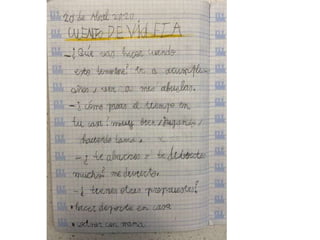 20 de Abril 2020
CUENTO DE VIOLETA
-¿Qué vas hacer cuando
esto termine? Ir a
a ver a mis abuelos.
-¿cómo pasas el tiempo en
tu casa? muy bien, jugando,
haciendo
-¿te aburres o te diviertes
mucho? me divierto.
-¿tienes otras propuestas?
•hacer deporte en casa
•cocinar con mamá